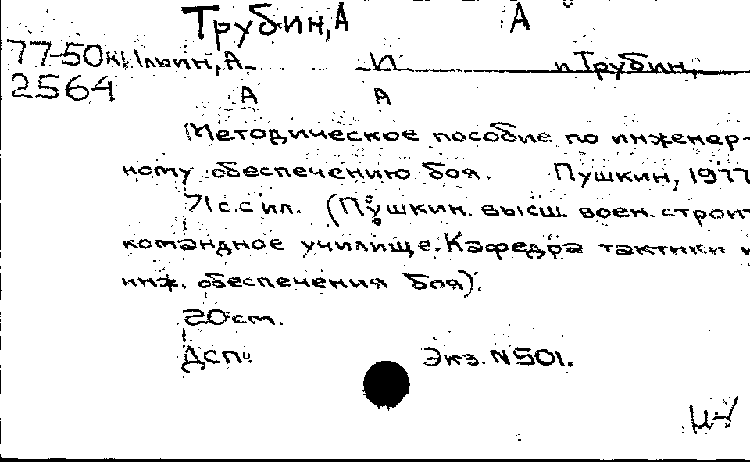 Трубин, А А
77-50кн. Ильин, А И и Трубин,
2564 А А
Методическое пособие по инженер-
ному обеспечению боя. Пушкин, 1977
71с. с ил. (Пушкин. высш. воен. строит
командное училище. Кафедра тактики и
инж. обеспечения боя).
20см.
Дсп.
Экз. N 501.